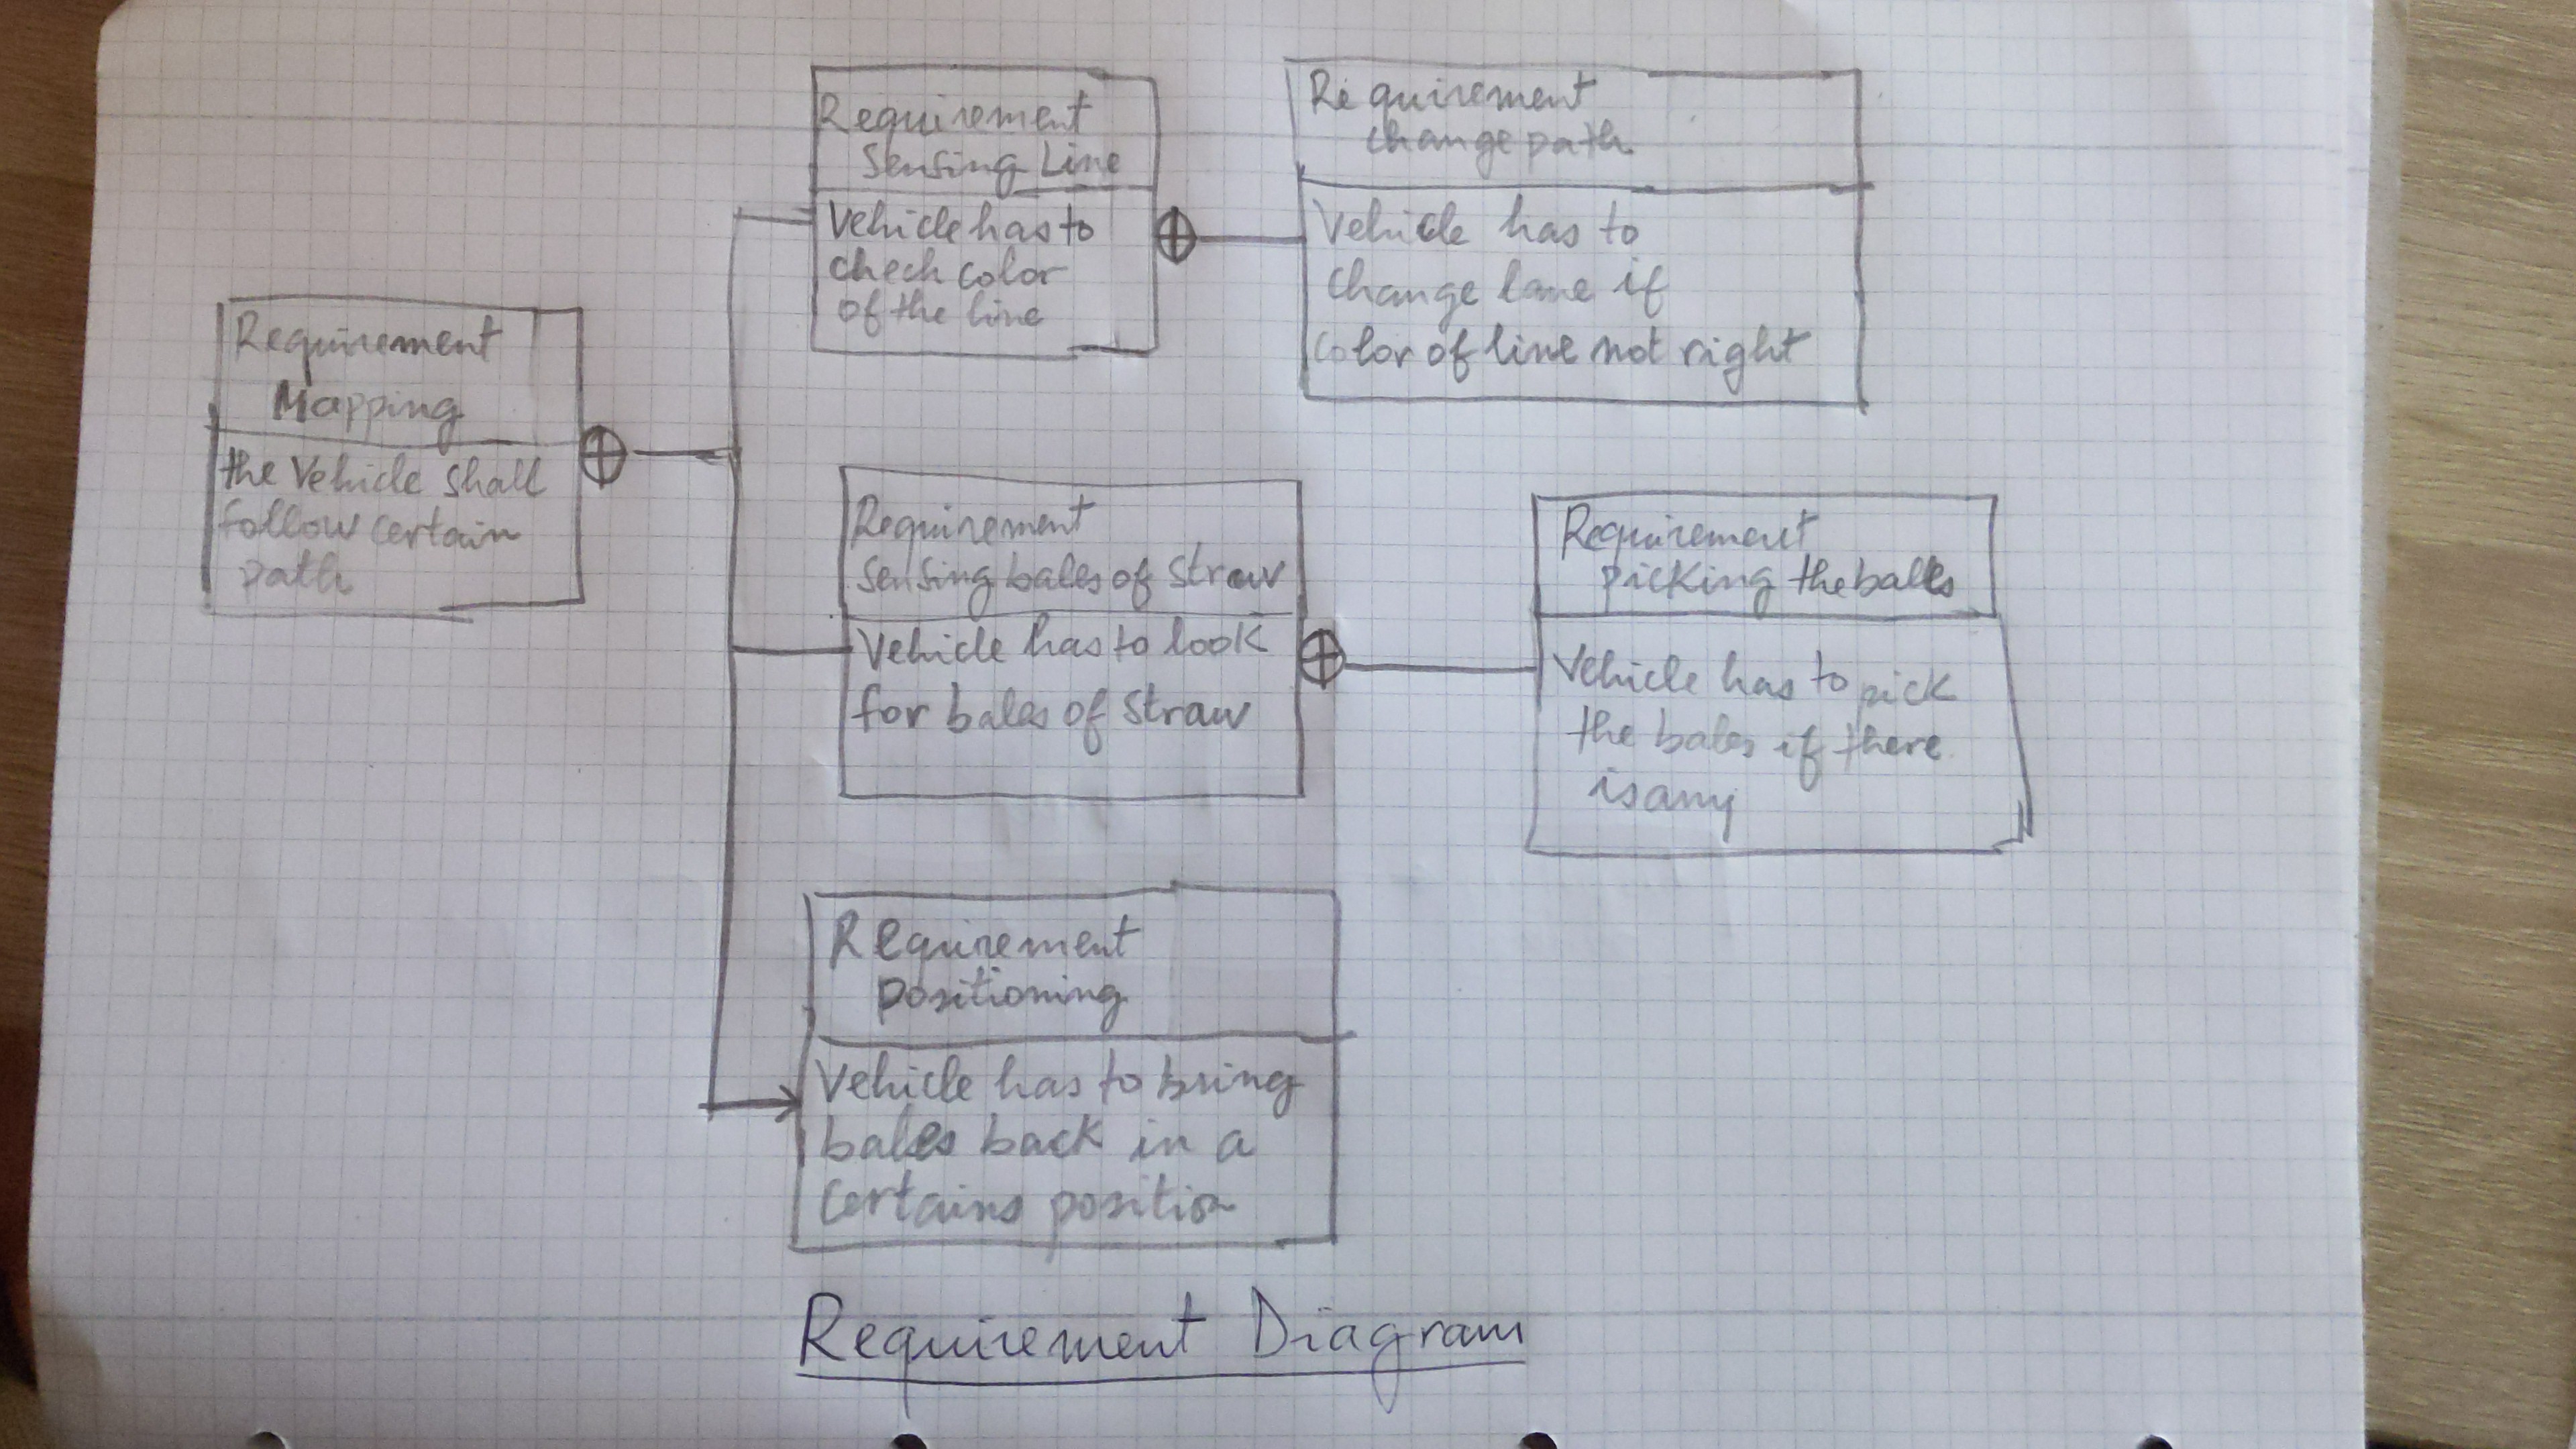 Requirement
Mapping
the Vehicle shall
follow certain
path
Requirement
Sensing Line
Vehicle has to
check color
of the line
Requirement
change path
Vehicle has to
change lane if
color of line not right
Requirement
sensing bales of straw
Vehicle has to look
for bales of straw
Requirement
picking the balls
Vehicle has to pick
the bales if there
is any
Requirement
positioning
Vehicle has to bring
bales back in a
certains position
Requirement Diagram